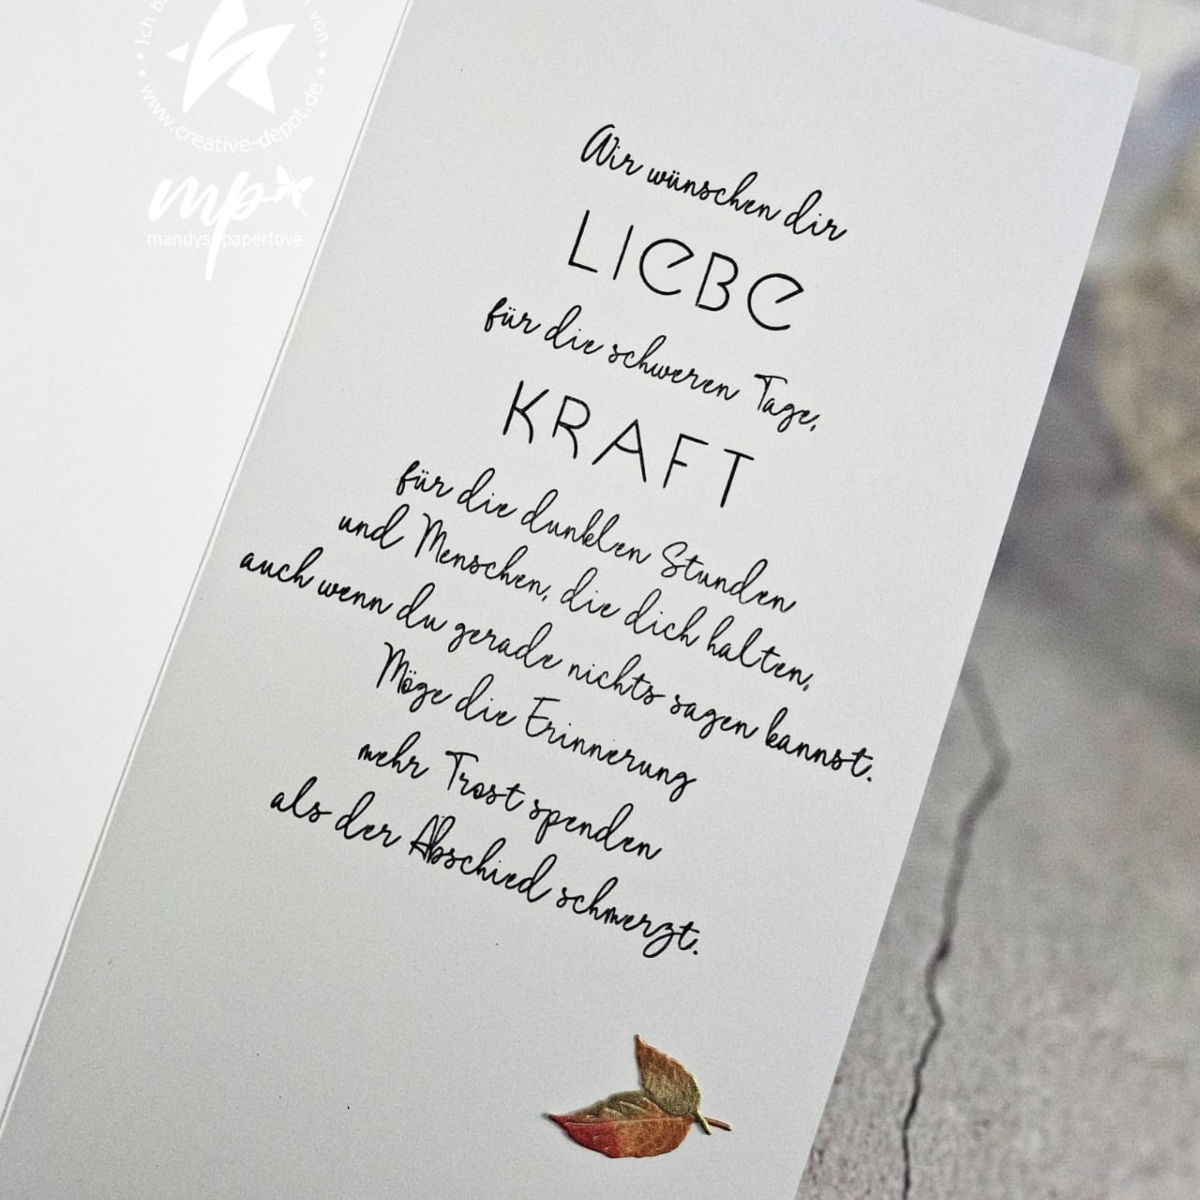 Ich b
von
www.creative-depot.de
mp
mandys paperlove
Wir wünschen dir
LIEBE
für die schweren Tage,
KRAFT
für die dunklen Stunden
und Menschen, die dich halten,
auch wenn du gerade nichts sagen kannst.
Möge die Erinnerung
mehr Trost spenden
als der Abschied schmerzt.